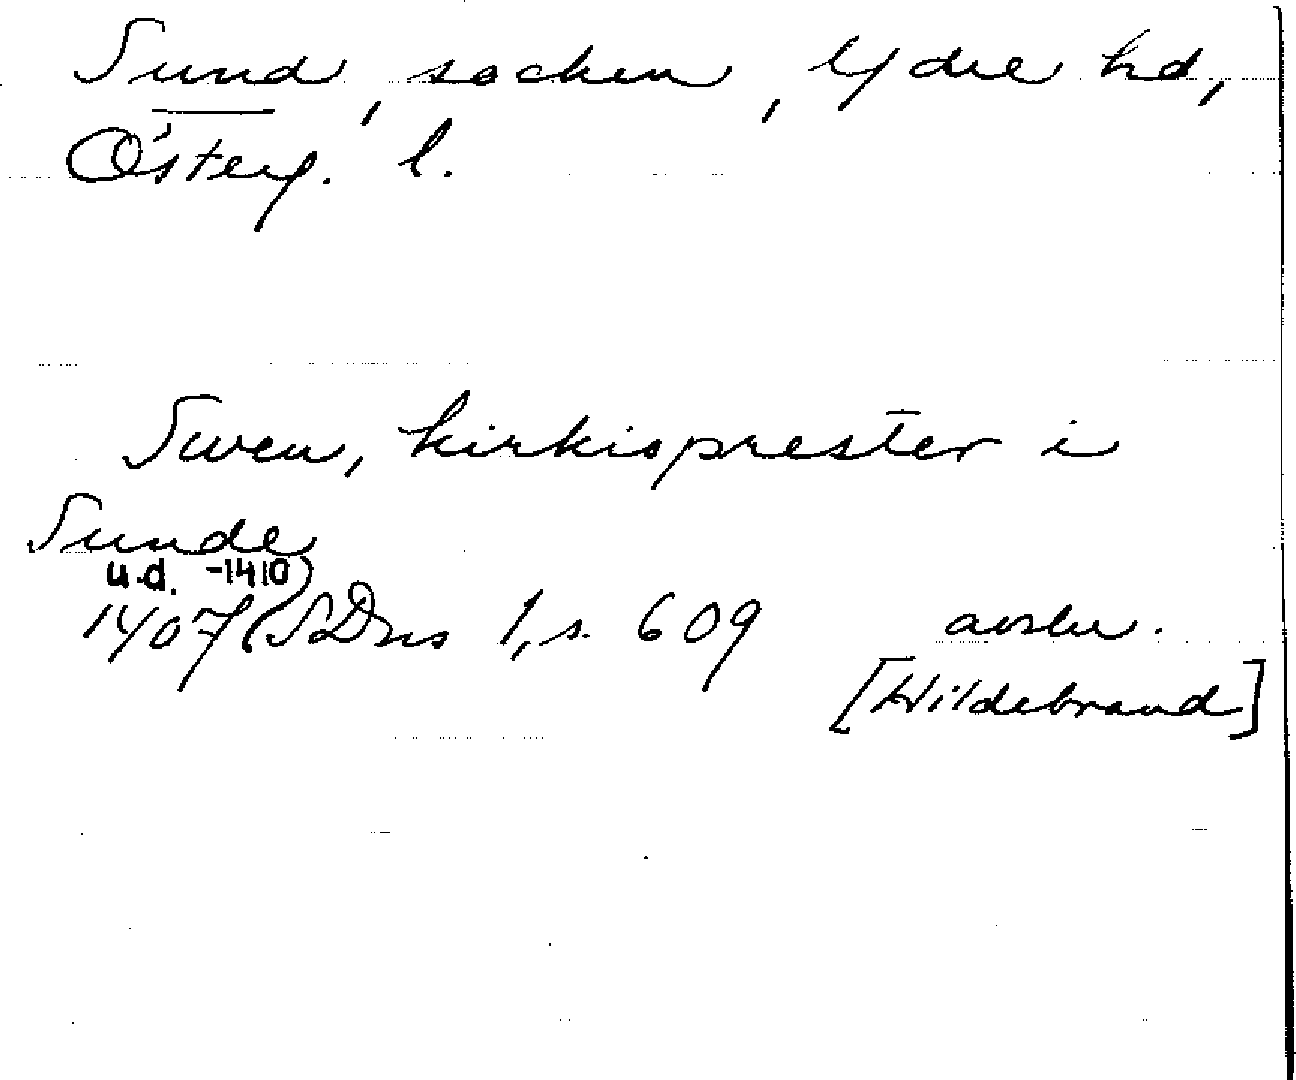 Sund, socken, Ydre hd,
Österg. l.
Swen, kirkisprester i
Sunde
u.d. -1410)
1407 (SDns 1, s. 609 avskr.
[Hildebrand]